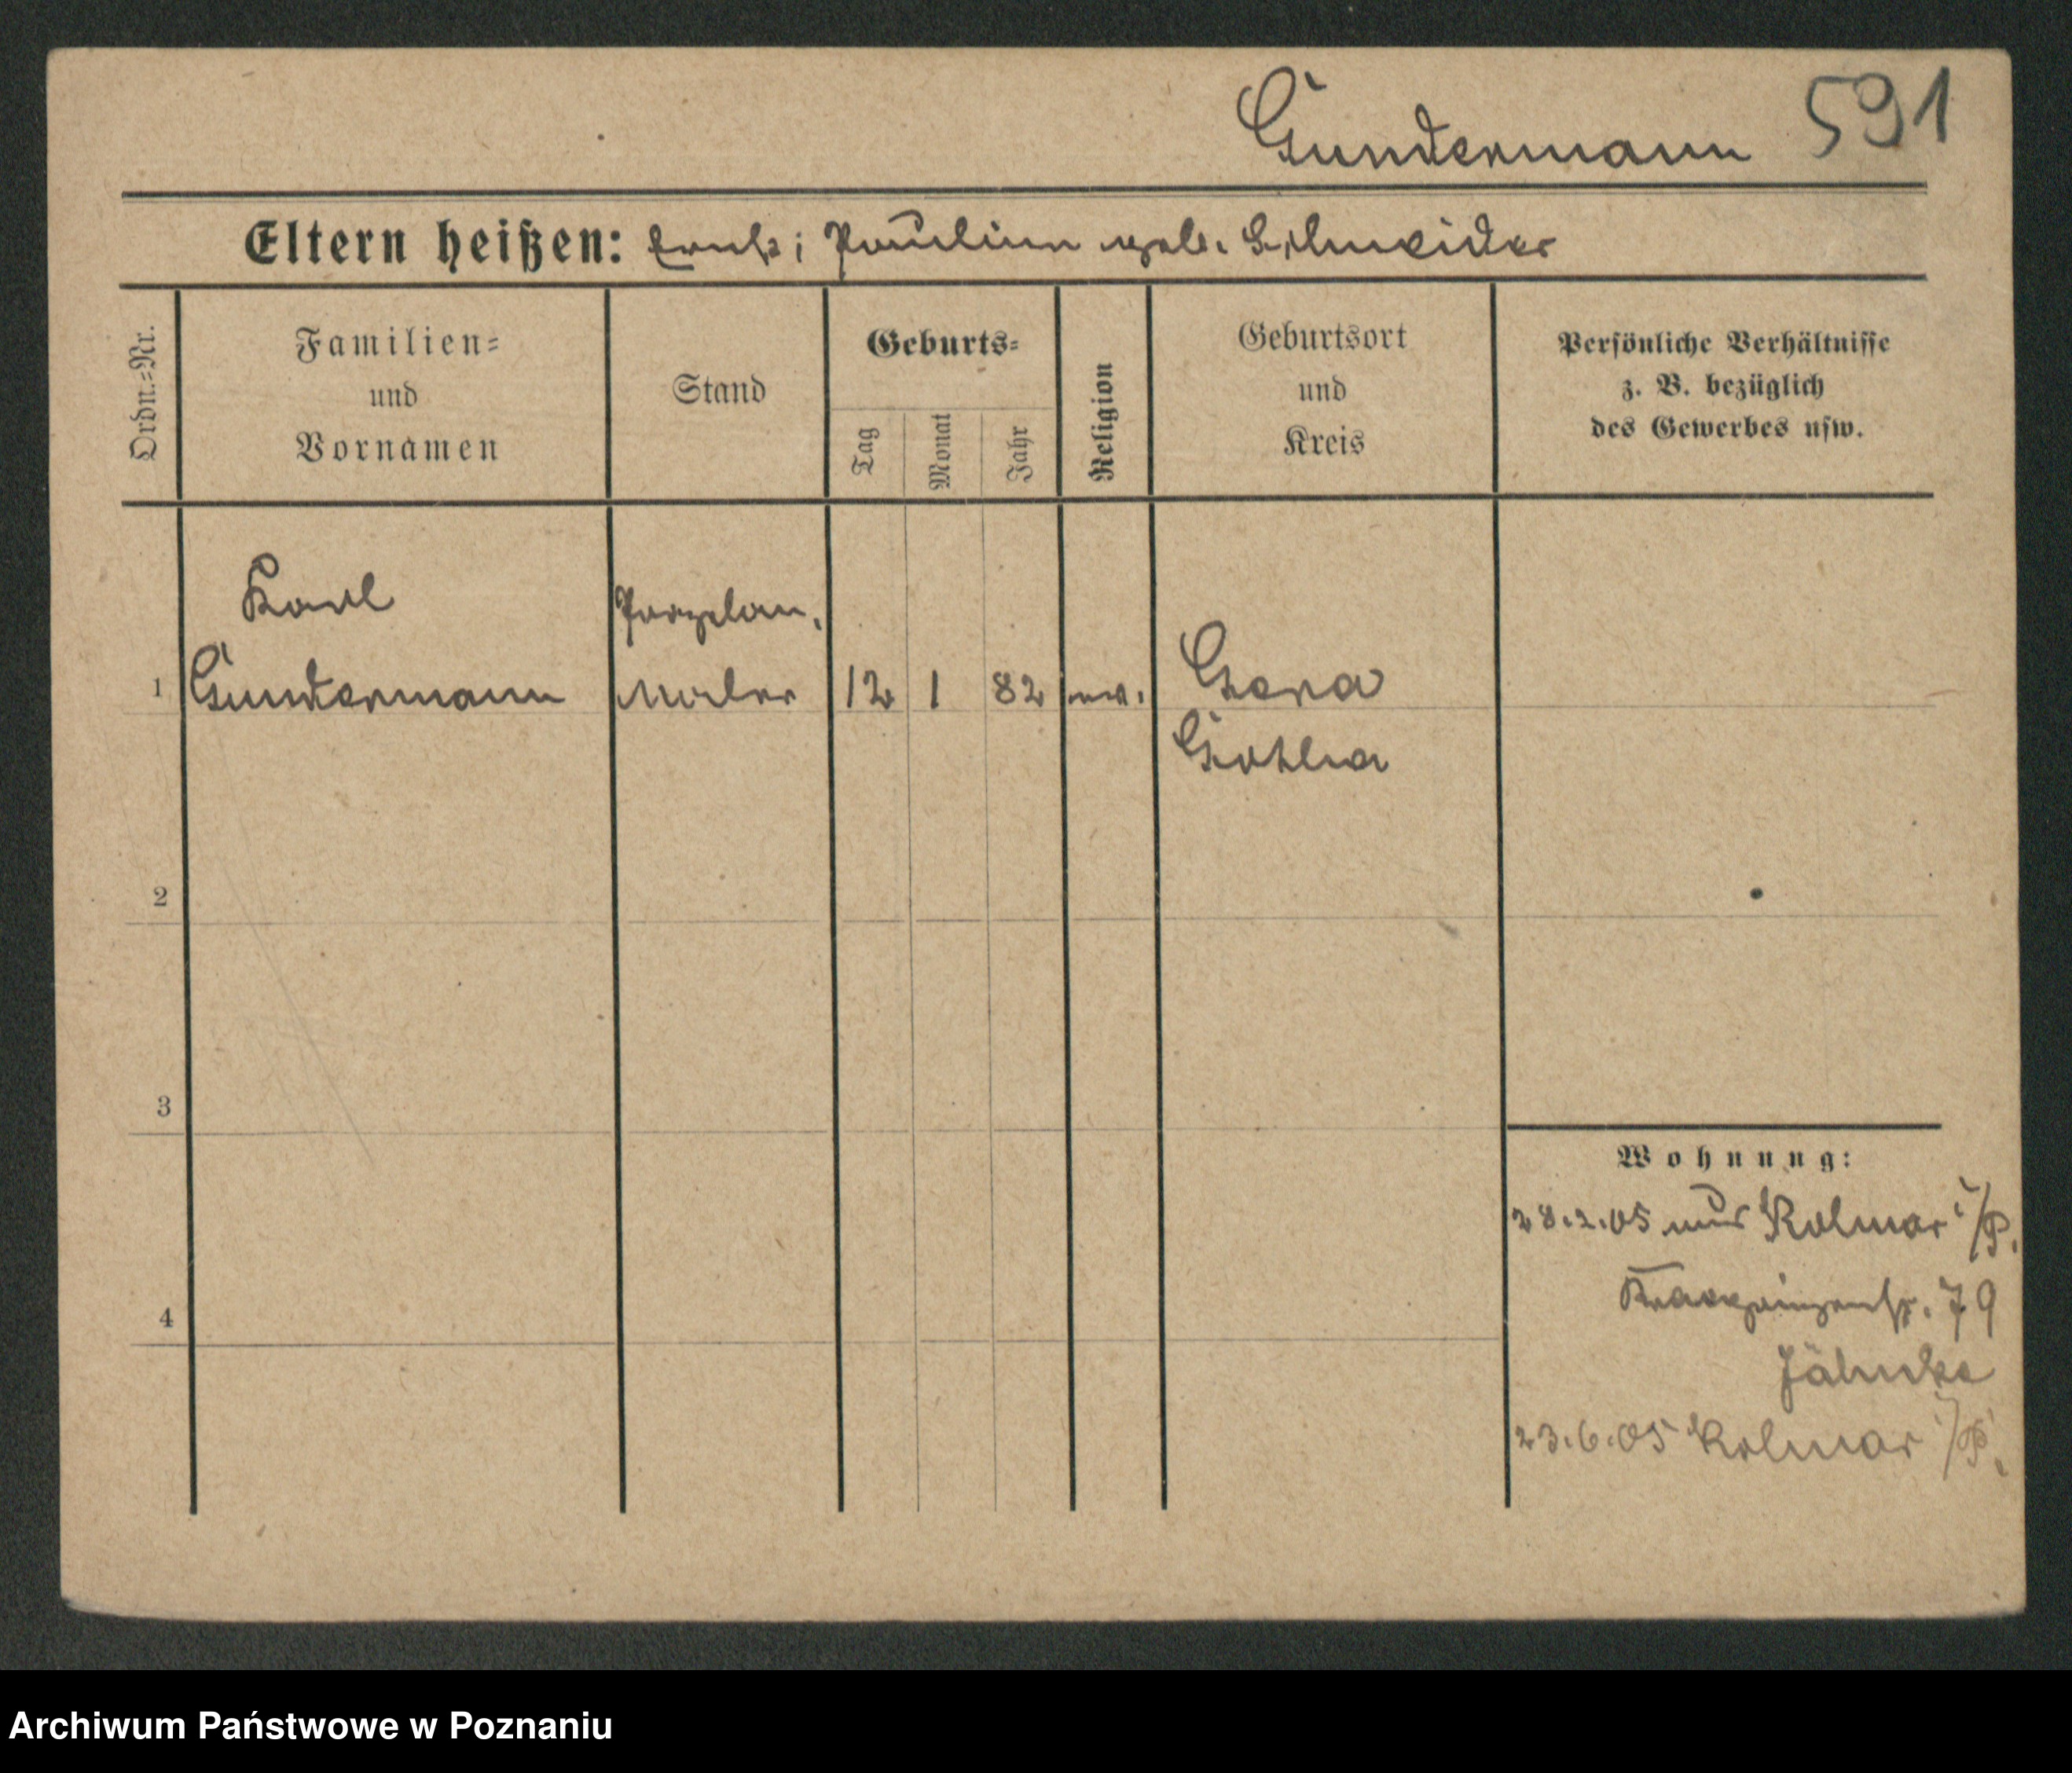 Gundermann 591
Eltern heißen: Ernst; Pauline geb. Schneider
Ordn.=Nr.
Familien=
und
Vornamen
Stand
Geburts=
Tag
Monat
Jahr
Religion
Geburtsort
und
Kreis
Persönliche Verhältnisse
z. B. bezüglich
des Gewerbes usw.
Karl
Porzelan.
1 Gundermann Maler 12 1 82 ev. Gera
2
3
4
Wohnung:
28.2.05 aus Kolmar i/P.
Kronprinzenstr. 79
Jähnke
23.6.05 Kolmar i/P.
Archiwum Państwowe w Poznaniu